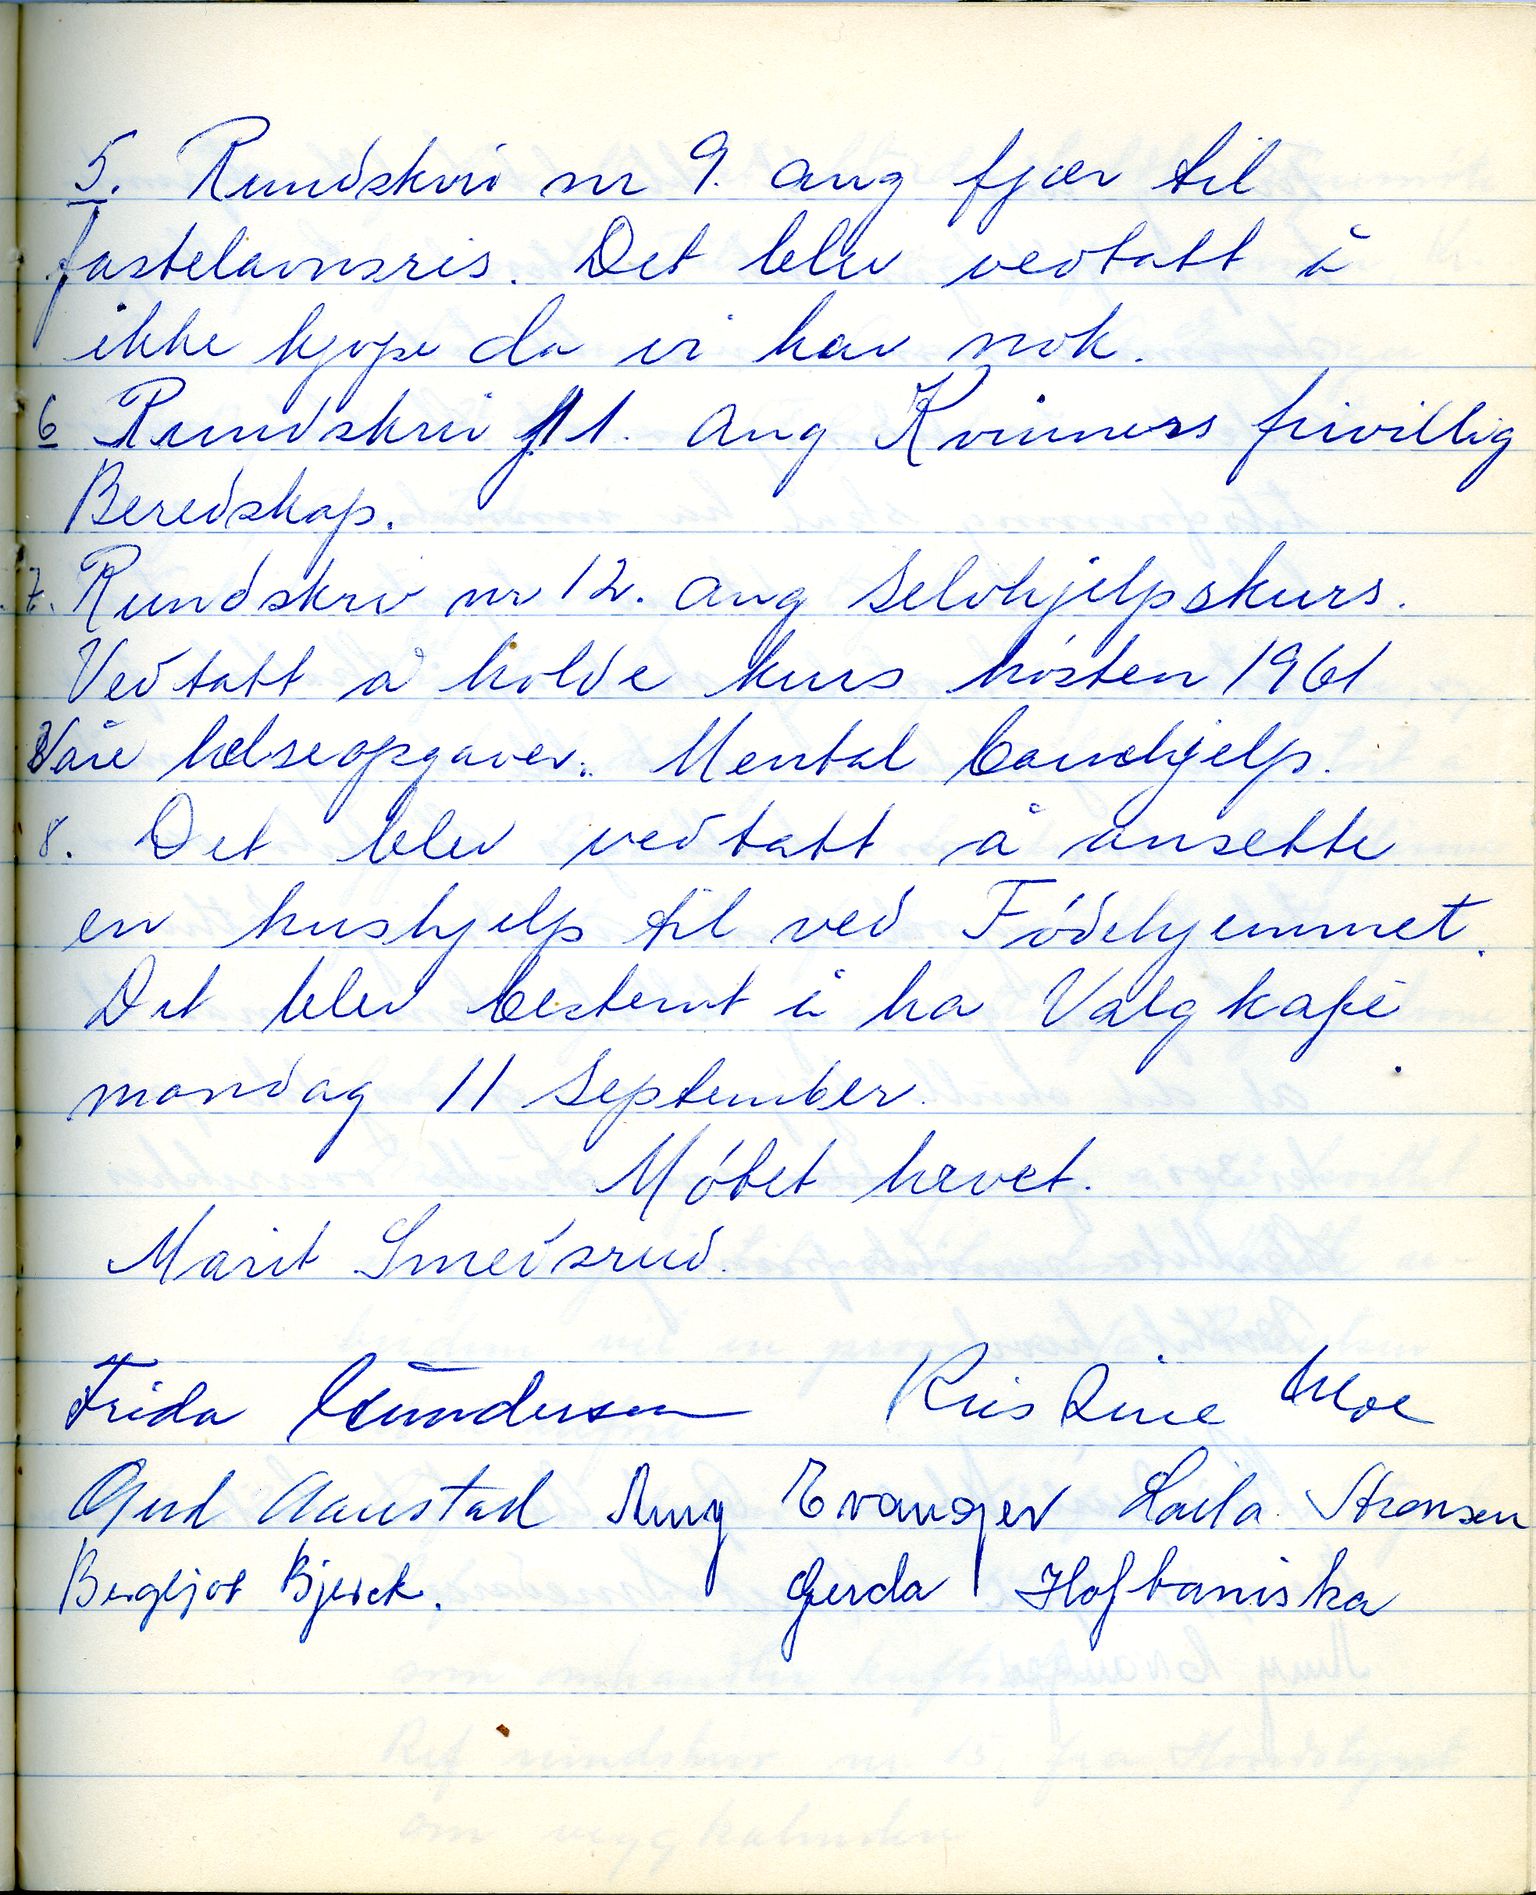 5. Rundskriv nr 9. ang fjær til
fastelavnsris. Det blev vedtatt å
ikke kjøpe da vi har nok.
6 Rundskriv 11. Ang Kvinners frivillig
Beredskap.
7. Rundskriv nr 12. ang Selvhjelpskurs.
Vedtatt å holde kurs høsten 1961
Våre helseopgaver. Mental barnehjelp.
8. Det blev vedtatt å ansette
en hushjelp til ved Fødehjemmet.
Det blev bestemt å ha Valgkafe
mandag 11 September.
Møtet hevet.
Marit Smedsrud.
Frida Gundersen Kristine Moe
Aanestad Amy Evanger Laila
Bergljot Bjerck. Gerda